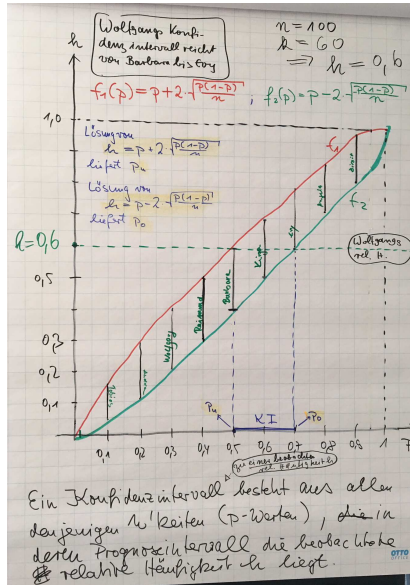 Wolfgangs Konfi-
denzintervall reicht
von Barbara bis Evy
n = 100
k = 60
⇒ h = 0,6
h
f₁(p) = p + 2·√(p(1-p)/n) ; f₂(p) = p - 2·√(p(1-p)/n)
1,0
Lösung von
h = p + 2·√(p(1-p)/n)
liefert pᵤ
Lösung von
h = p - 2·√(p(1-p)/n)
liefert p₀
f₁
f₂
h = 0,6
Wolfgangs
rel. H.
0,5
0,3
0,2
0,1
Wolfgang
Raimund
Barbara
Evy
pᵤ
KI
p₀
0,1 0,2 0,3 0,4 0,5 0,6 0,7 0,8 0,9 1
zu einer beobachteten
rel. Häufigkeit h
Ein Konfidenzintervall besteht aus allen
denjenigen W'keiten (p-Werten), die in
deren Prognoseintervall die beobachtete
relative Häufigkeit h liegt.
OTTO
OFFICE